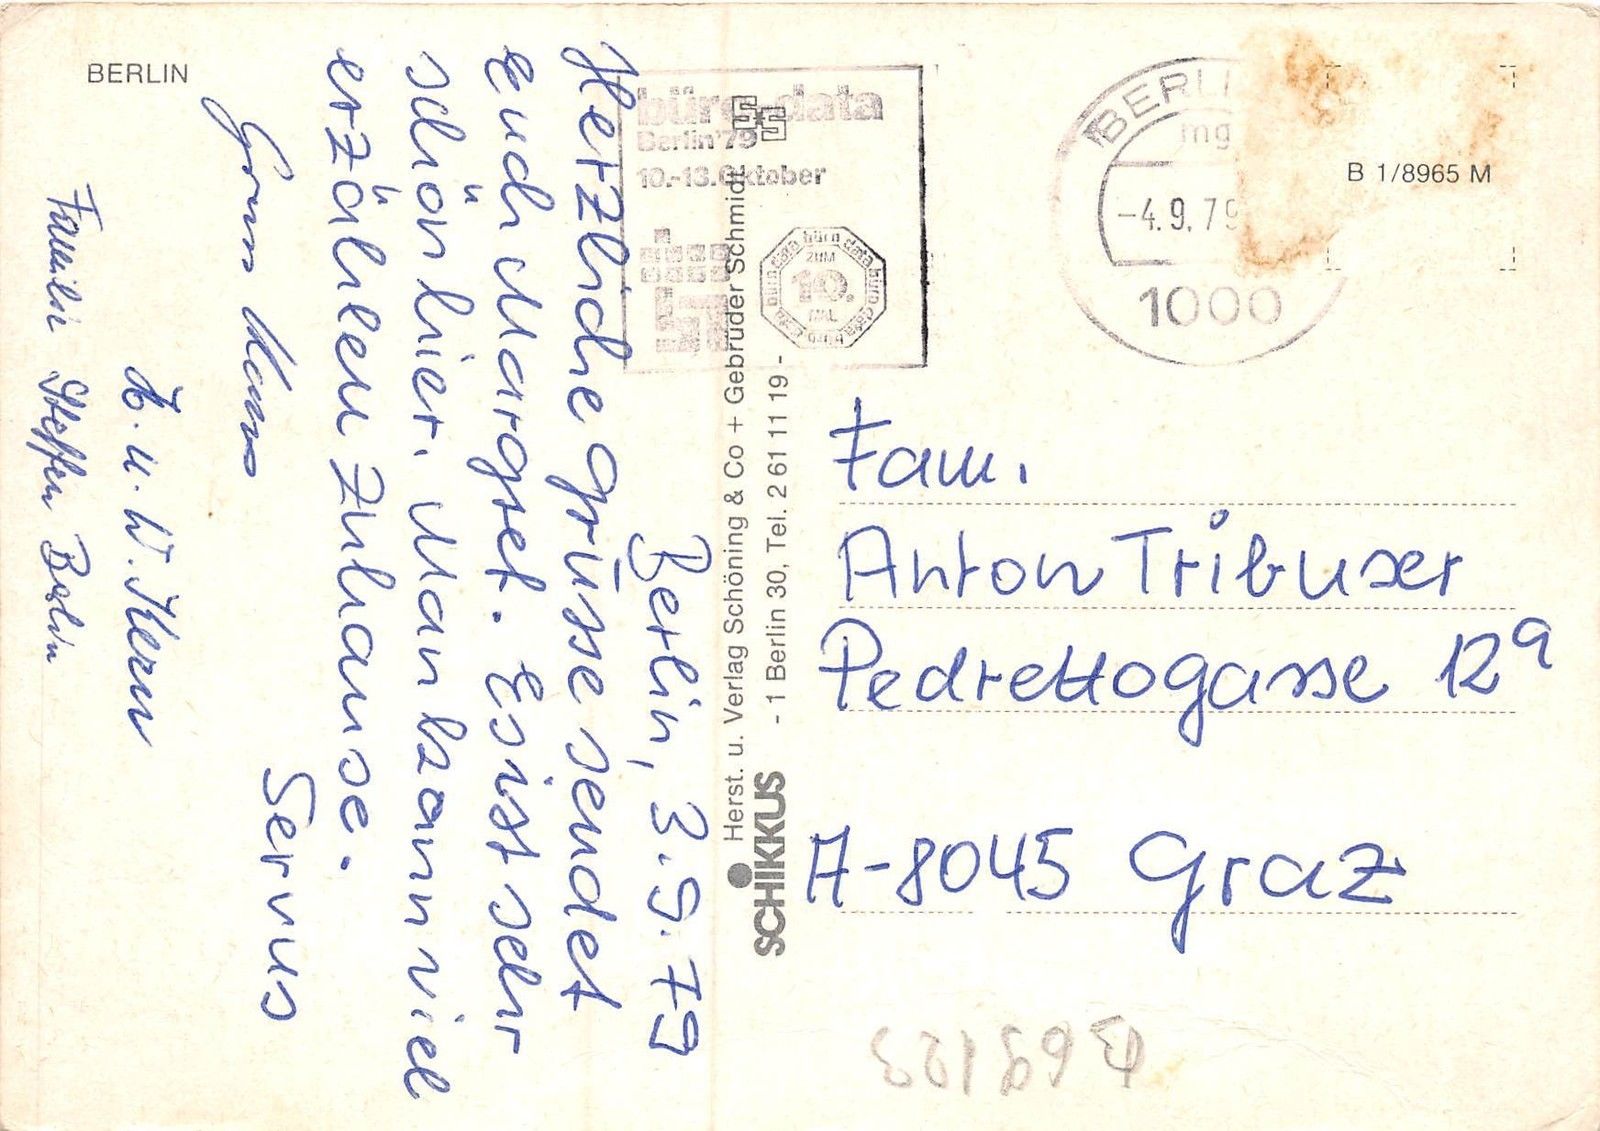 BERLIN
Berlin, 3.9.79
Herzliche Grüsse sendet
Euch Margret. Es ist sehr
schön hier. Man kann viel
erzählen zuhause.
Servus
H. u. W. Kern
Familie Steffen Berlin
Herst. u. Verlag Schöning & Co + Gebrüder Schmidt
- 1 Berlin 30, Tel. 2 61 11 19 -
SCHIKKUS
büro data
Berlin '79
10.-13. Oktober
büro data büro data büro data
ZUM
10.
MAL
BERLI
mg
-4.9.79
1000
B 1/8965 M
Fam.
Anton Tribuser
Pedrettogasse 12a
A-8045 Graz